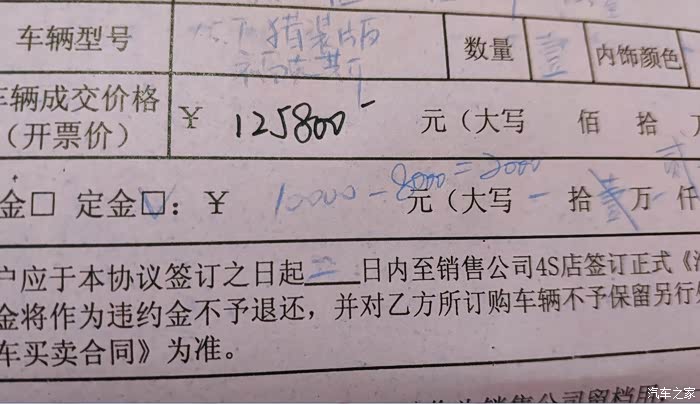 车辆型号 猎装版 数量 壹 内饰颜色
车辆成交价格
(开票价) ¥ 125800 元(大写 佰 拾 万
金□ 定金☑: ¥ 10000-8000=2000 元(大写 - 拾 壹 万 - 仟 贰
户应于本协议签订之日起 三 日内至销售公司4S店签订正式《汽
金将作为违约金不予退还,并对乙方所订购车辆不予保留另行
车买卖合同》为准。
销售公司留档用
汽车之家